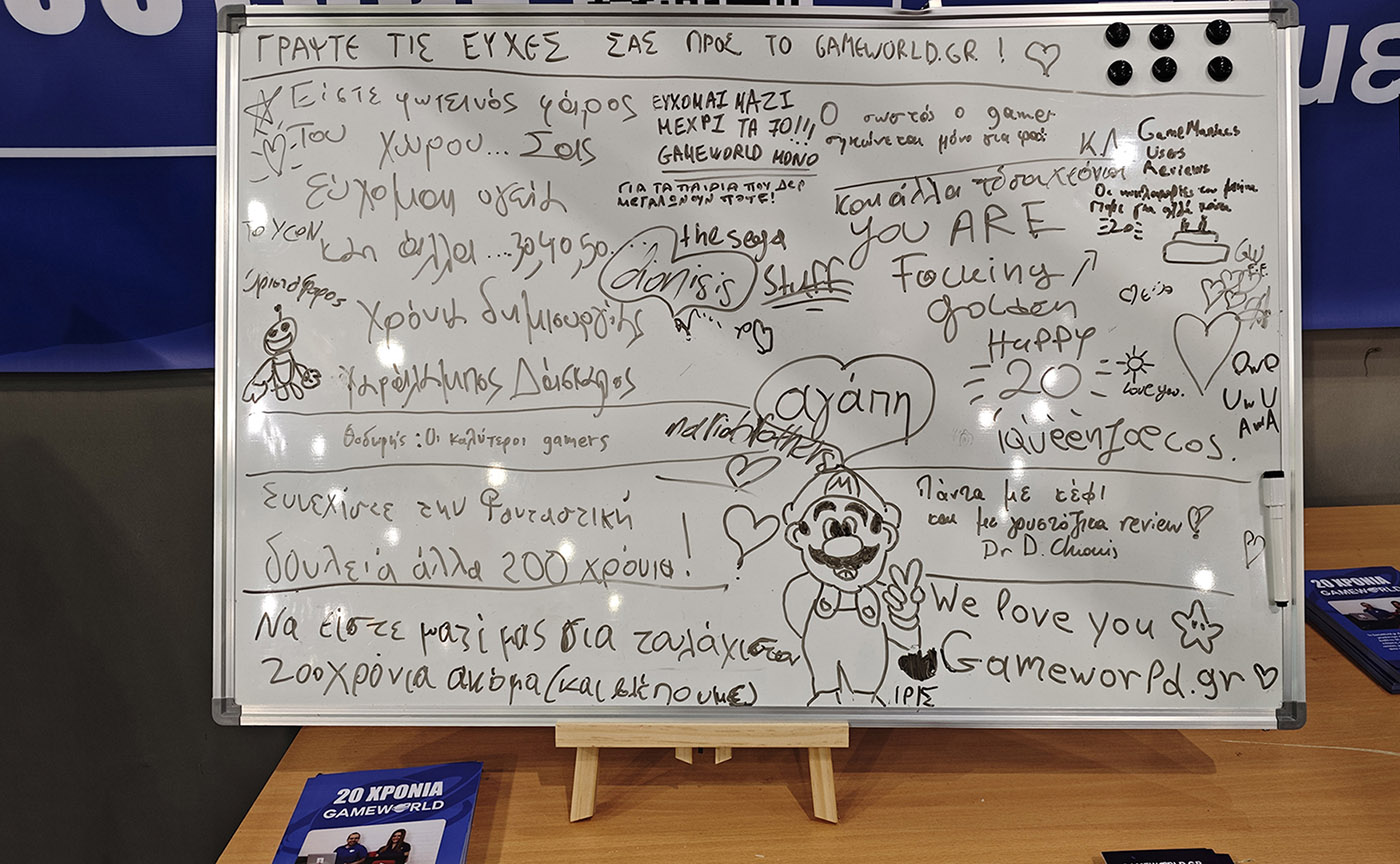 ΓΡΑΨΤΕ ΤΙΣ ΕΥΧΕΣ ΣΑΣ ΠΡΟΣ ΤΟ GAMEWORLD.GR !
Είστε φωτεινός φάρος
Του χώρου... Σας
εύχομαι υγεία
και άλλα ...30,40,50...
χρόνια δημιουργίας
χαράλαμπος Δάσκαλος
ΕΥΧΟΜΑΙ ΜΑΖΙ
ΜΕΧΡΙ ΤΑ 70!!!
GAMEWORLD ΜΟΝΟ
ΓΙΑ ΤΑ ΠΑΙΔΙΑ ΠΟΥ ΔΕΝ
ΜΕΓΑΛΩΝΟΥΝ ΠΟΤΕ!
Ο σωστός ο gamer
σηκώνεται μόνο για
ΚΛ
GameManiacs
Users
Reviews
=20=
GW
και άλλα τόσα χρόνια
YOU ARE
Focking
golden
HaPPy
=20=
love you.
iQueenJoecos.
OwO
UwU
AwA
the sega
dionisis
Stuff
Χριστόφορος
αγάπη
mariobrothers
Θοδωρής : Οι καλύτεροι gamers
Συνεχίστε την Φανταστική
δουλειά άλλα 200 χρόνια!
M
Πάντα με κέφι
και με γουστόζικα review!
Dr D.
Να είστε μαζί μας για τουλάχιστον
200 χρόνια ακόμα (και βλέπουμε)
ΙΡΙΣ
We love you
Gameworld.gr
20 ΧΡΟΝΙΑ
GAMEWORLD
20 ΧΡΟΝΙΑ
GAMEWORLD
GAMEWORLD.GR